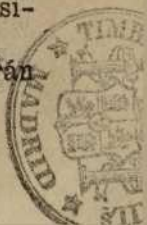 si-
rán
TIMB
MADRID